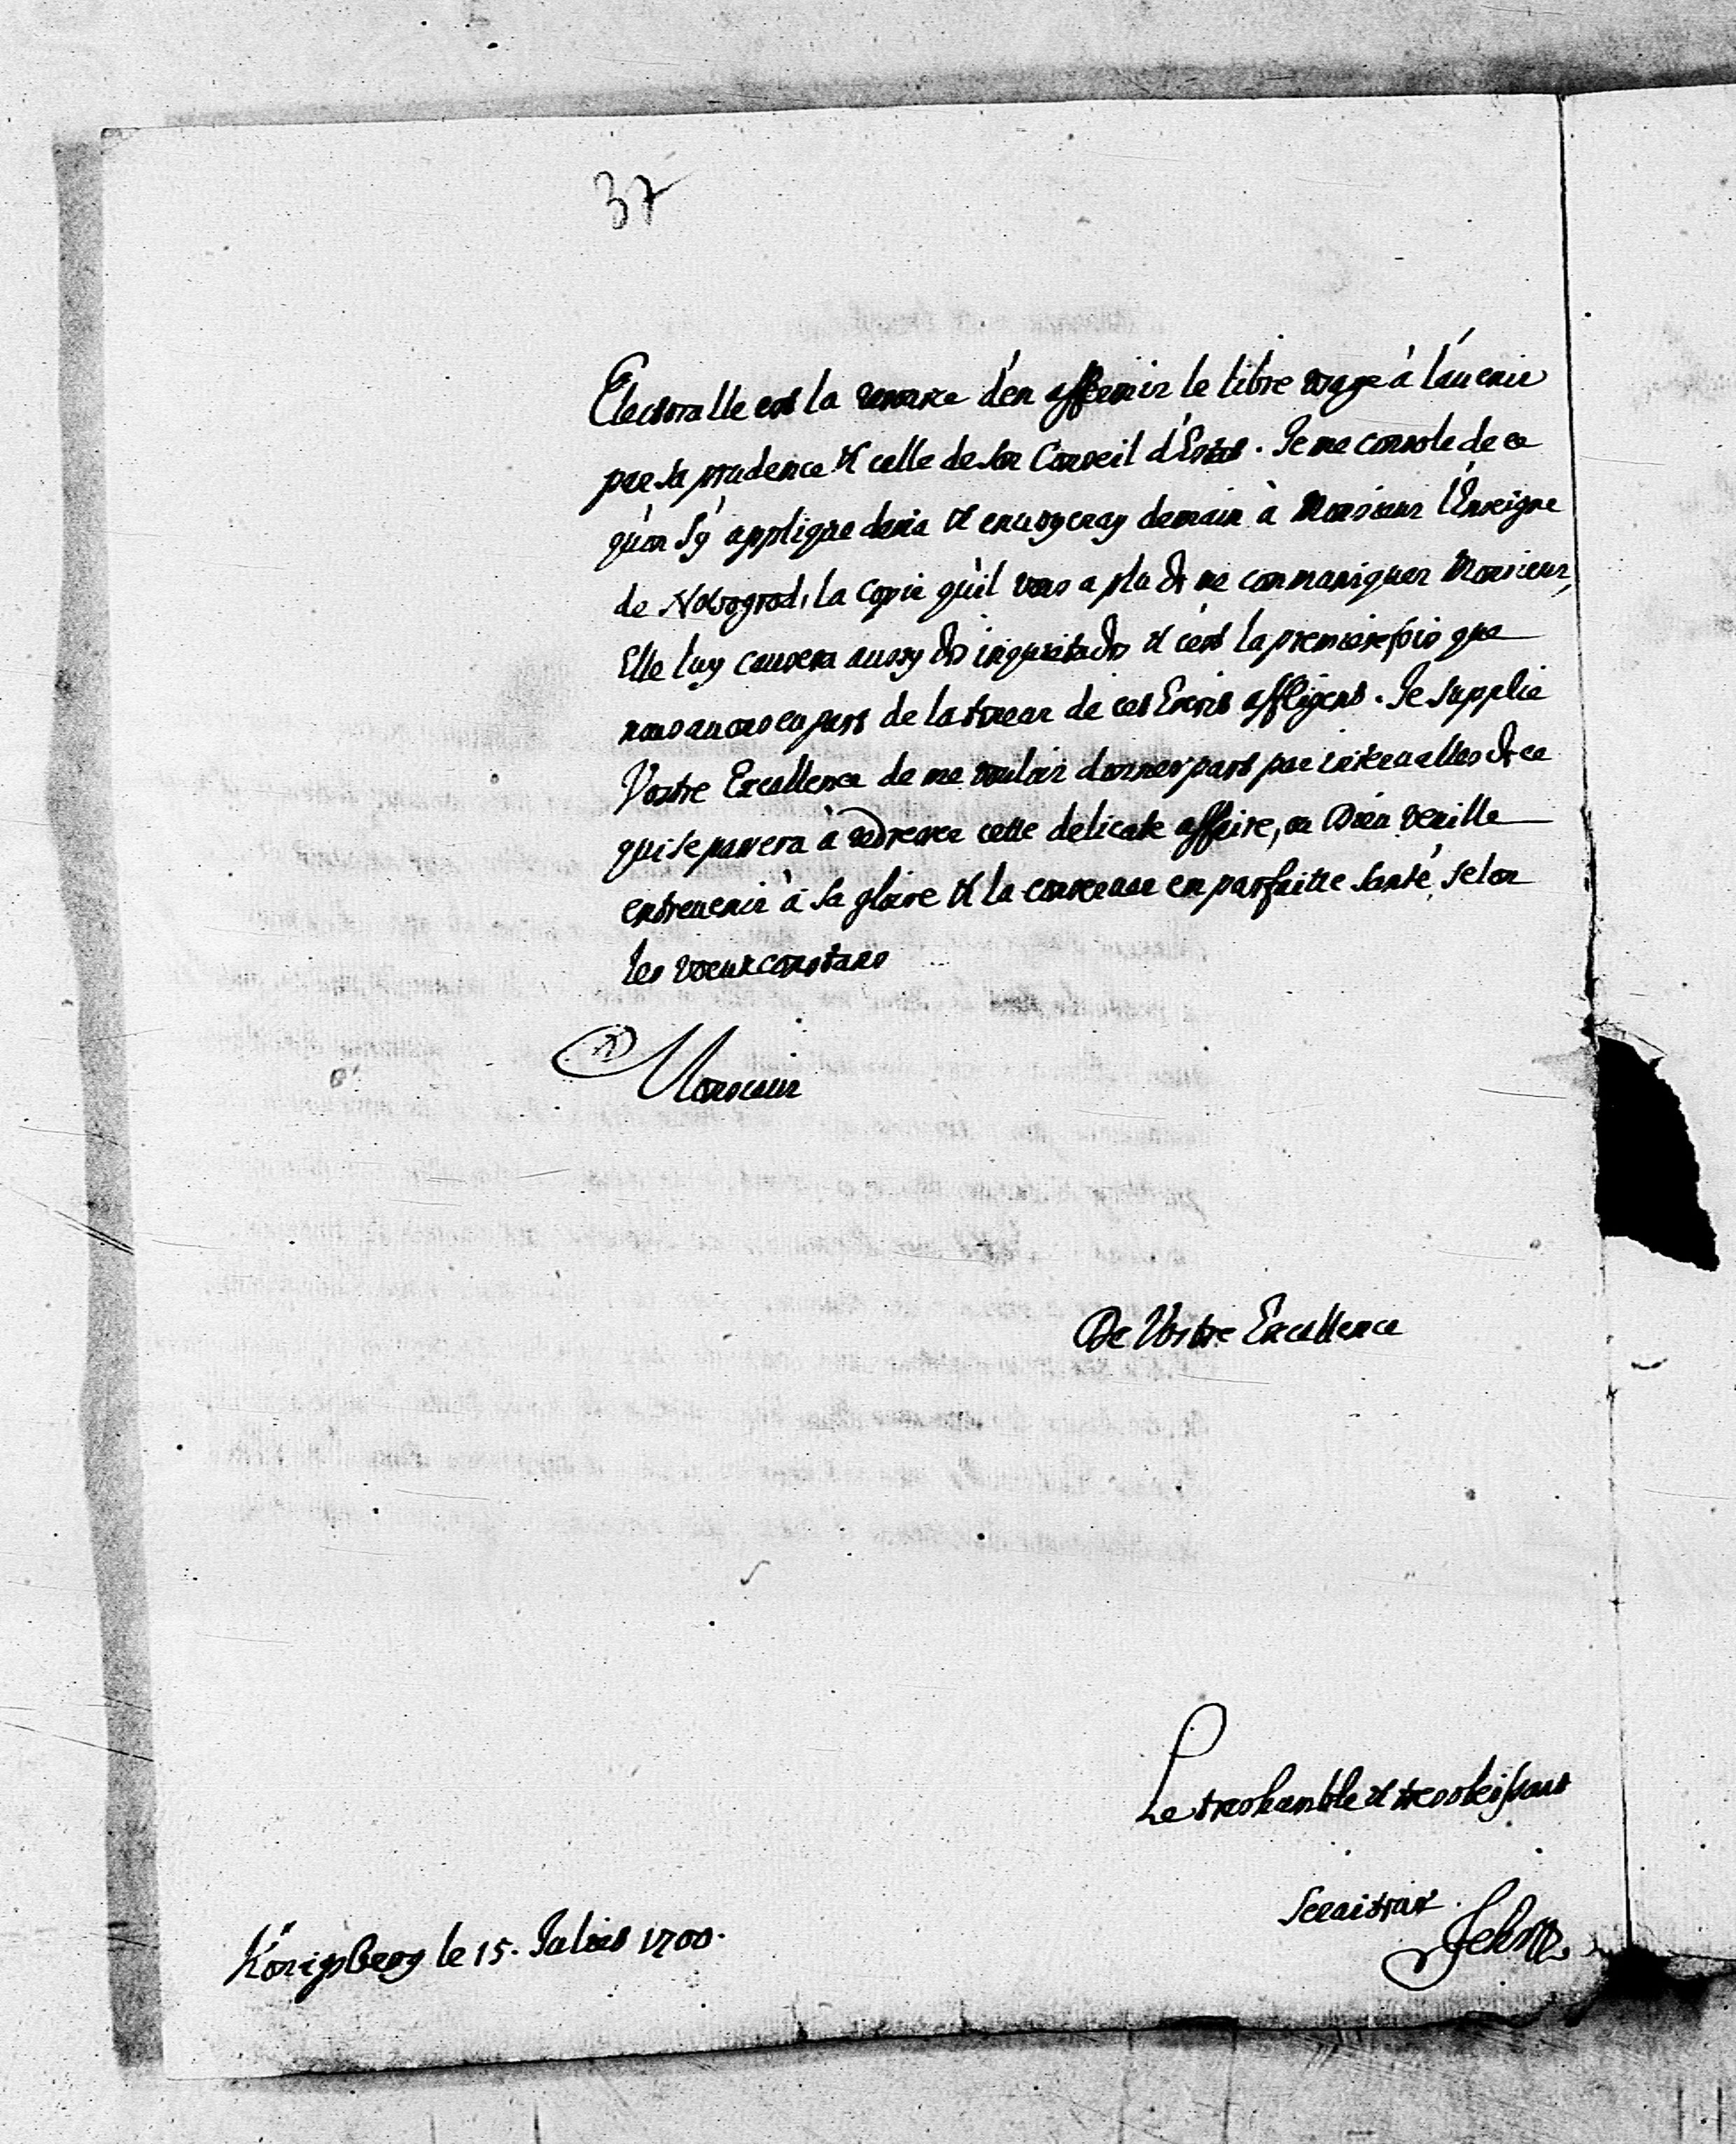 37
Electoralle est la d'en affermir le libre usage à l'auenir
par sa prudence et celle de son Conseil d'Estat. Je me console de ce
qu'on s'y applique desia et enuoyeray demain à Monsieur l'Enseigne
de Novogrod, la copie qu'il vous a plu de me communiquer Monsieur,
Elle luy causera aussy des inquietudes et c'est la premiere fois que
nous auons eu part de la teneur de ces Escrits affligens. Je supplie
Vostre Excellence de me vouloir donner part par interualles de ce
qui se passera à redresser cette delicate affaire, ou Dieu veuille
entreuenir à sa gloire et la conseruer en parfaitte santé, selon
les voeux constans
Monsieur
De Vostre Excellence
Le tres humble et tres obeissant
Seruiteur
Königsberg le 15. Juliet 1700.